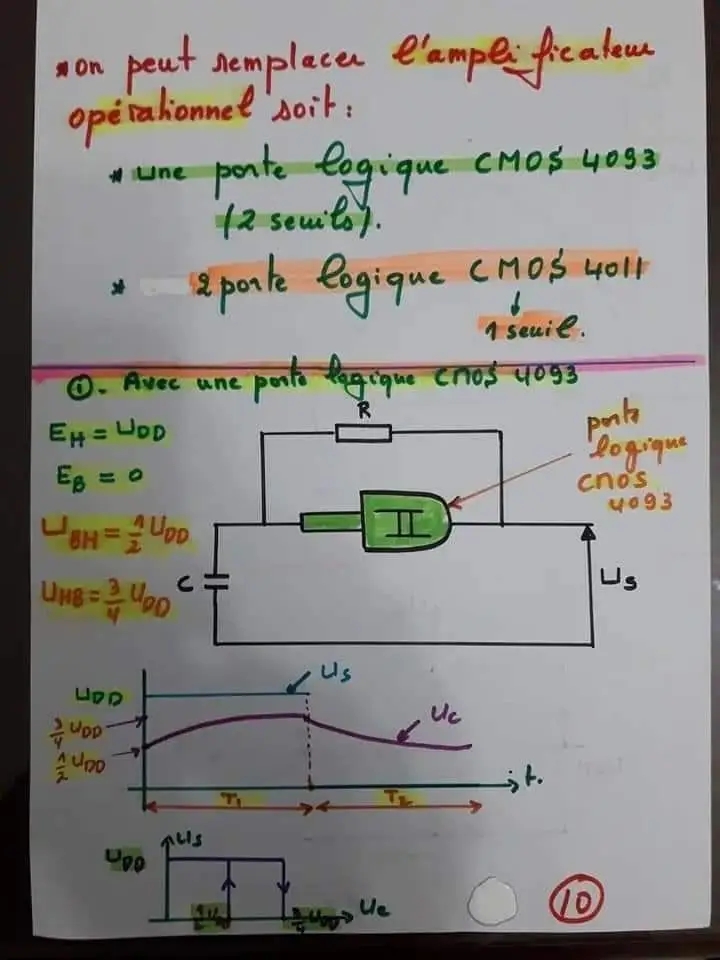 *on peut remplacer l'amplificateur
opérationnel soit:
* une porte logique CMOS 4093
(2 seuils).
* 2 porte logique CMOS 4011
1 seuil.
①. Avec une porte logique CMOS 4093
E_H = U_DD
E_B = 0
U_BH = 1/2 U_DD
U_HB = 3/4 U_DD
R
porte
logique
CMOS
4093
C
U_s
U_DD
U_s
3/4 U_DD
U_c
1/2 U_DD
t.
T_1
T_2
U_s
U_DD
1/2 U_DD
3/4 U_DD
U_e
10